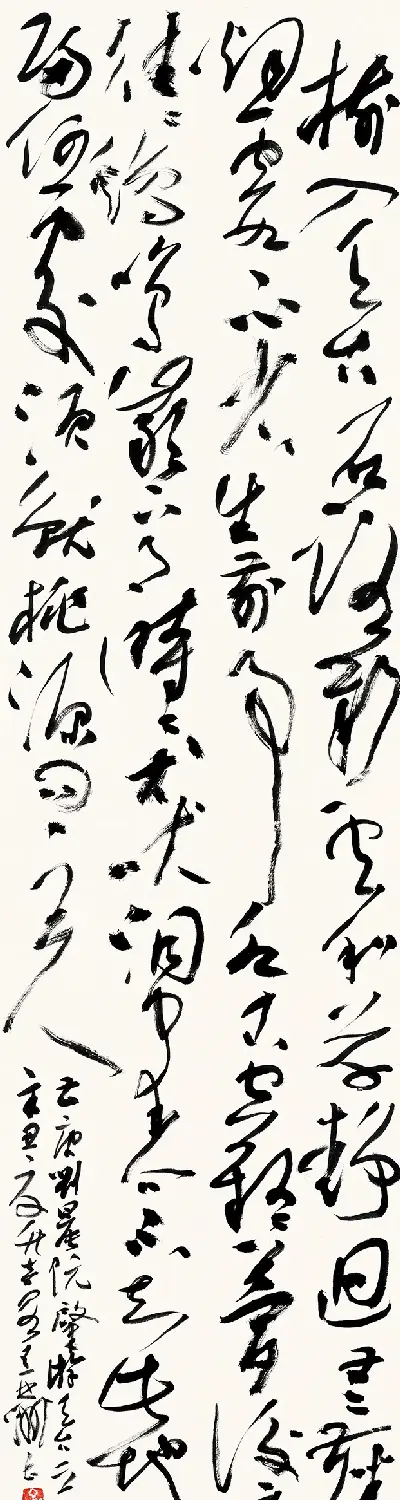 樹入天台石路新雲和草静迥無塵
烟霞不省生前事水木空疑夢後身
往往鷄鳴巖下月時時犬吠洞中春不知此地
歸何處須就桃源問主人
唐劉晨阮肇游天台
辛丑夏